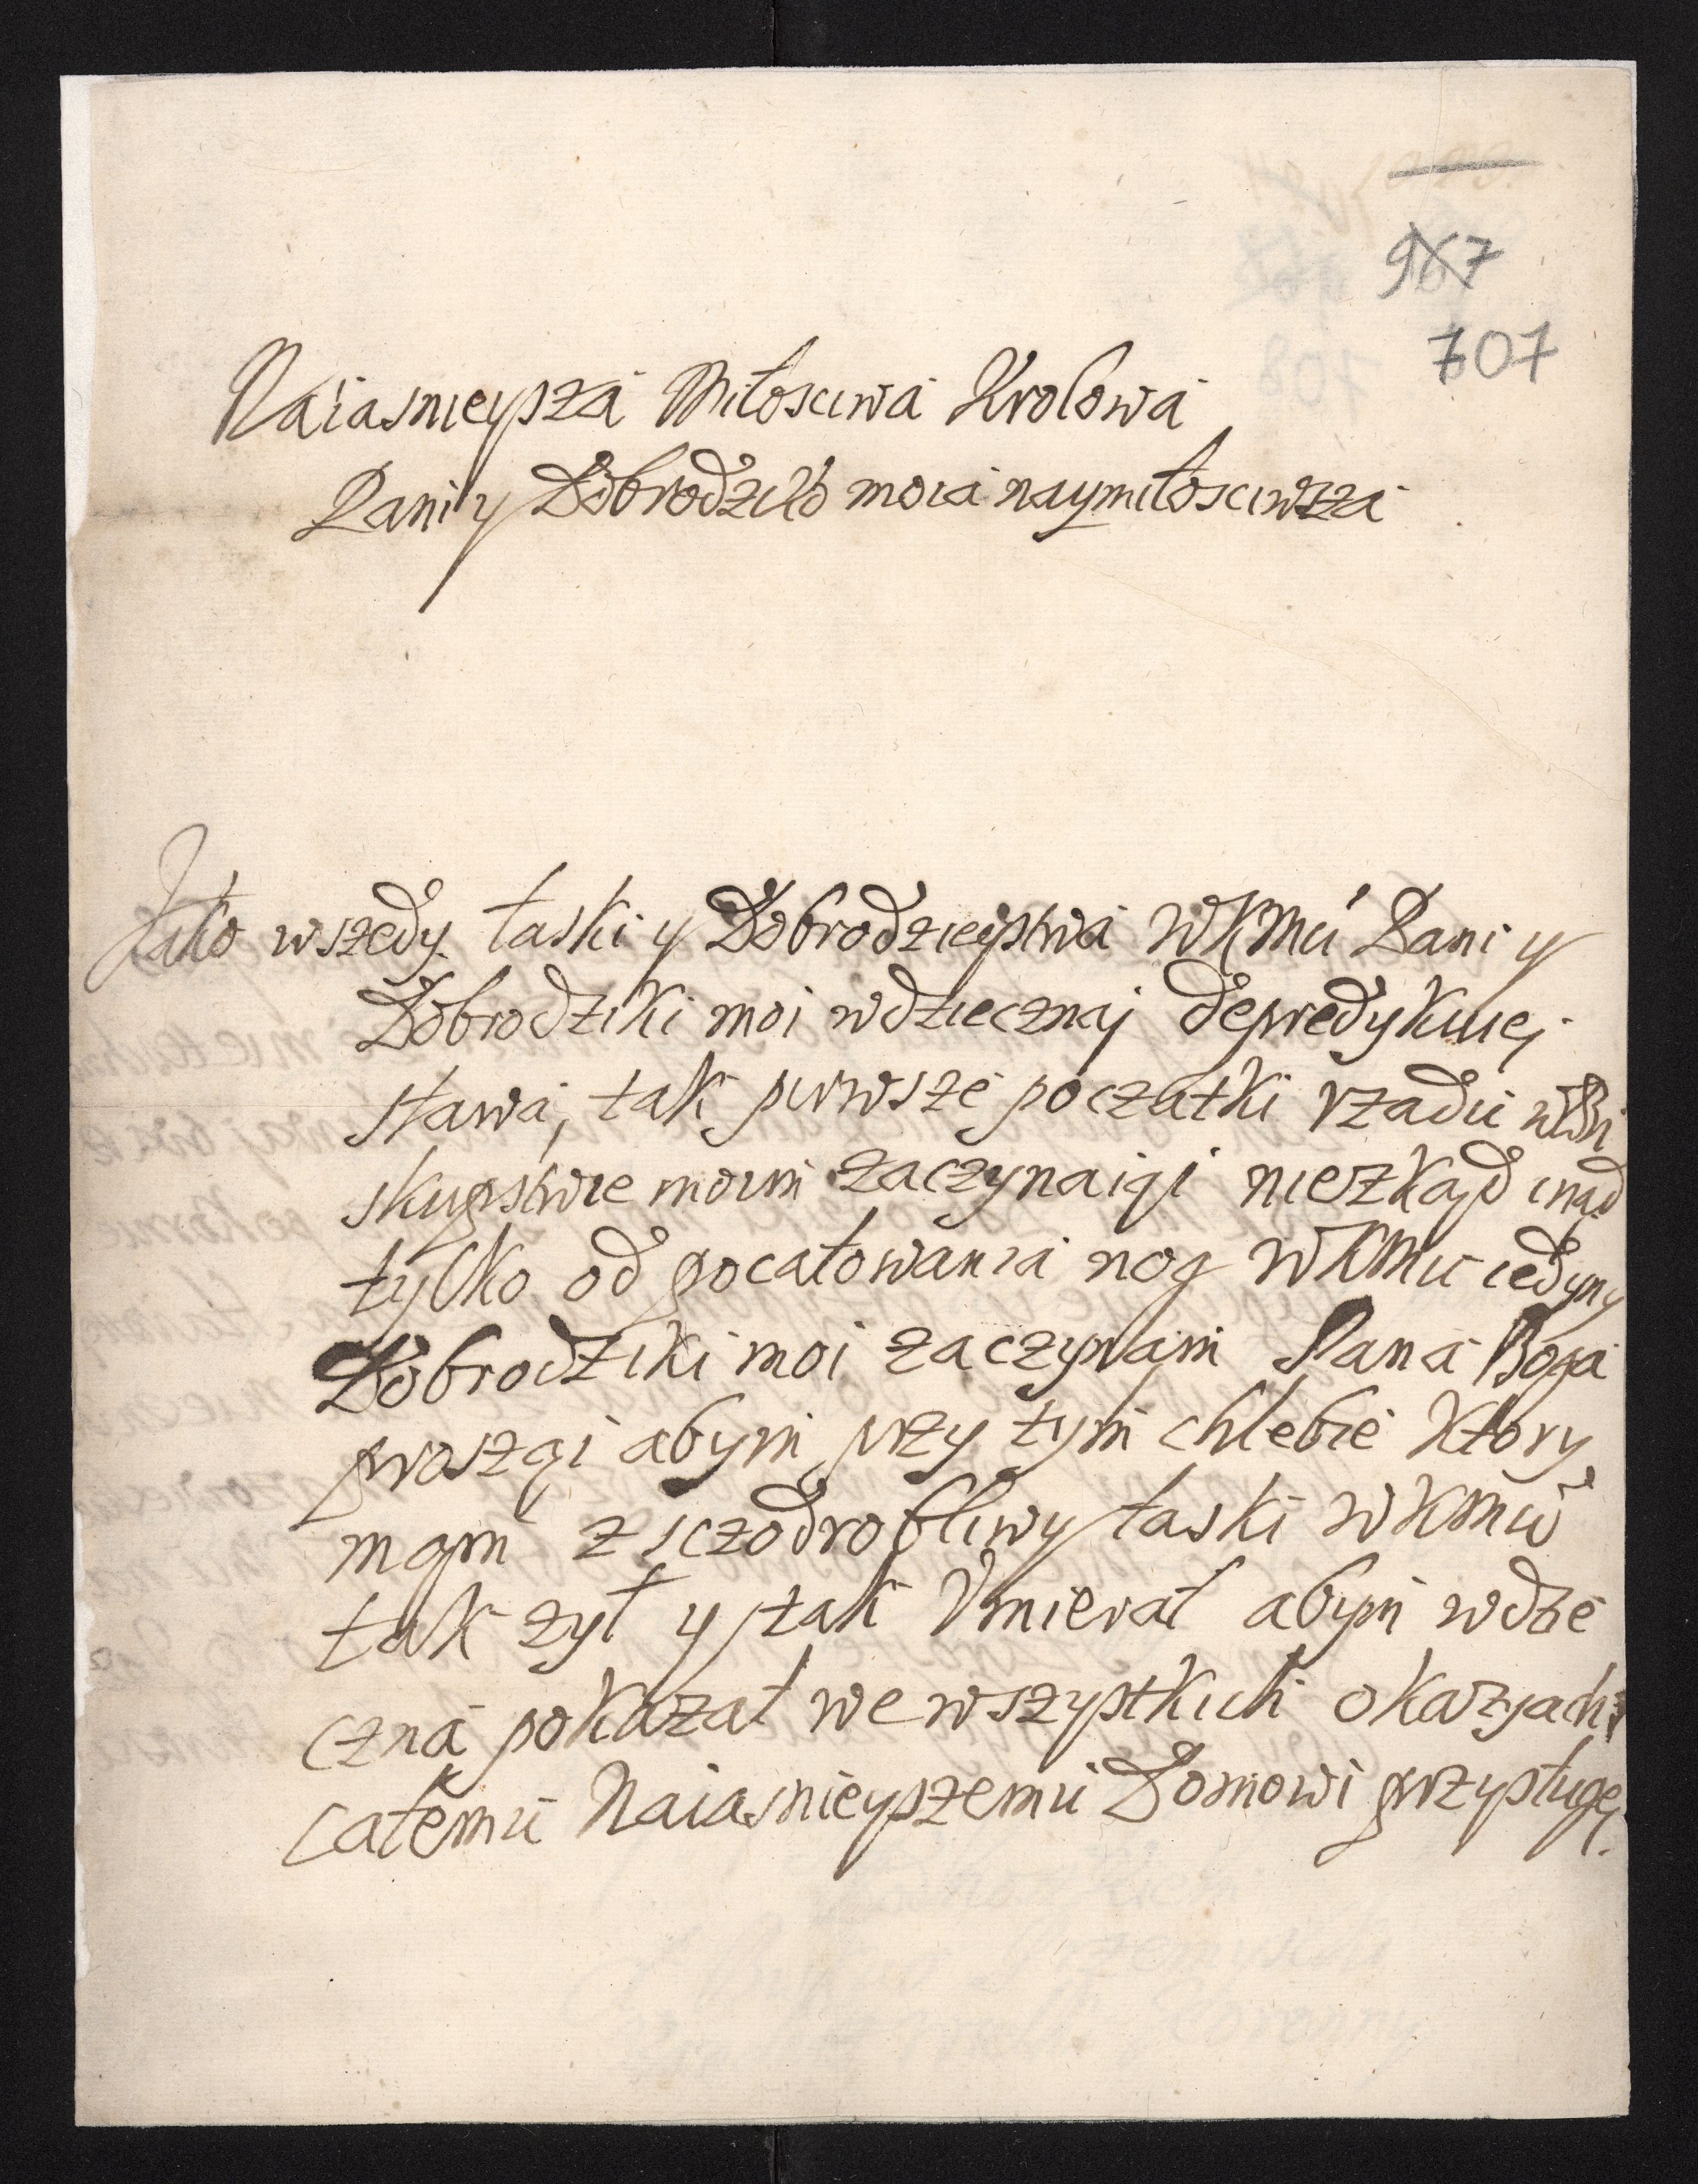 967
707
Naiasnieysza Miłosciwa Krolowa
Pani y Dobrodziko moia naymiłosciwsza
Jako wszedy łaski y Dobrodzieystwa WKMci Pani y
Dobrodziki moi wdziecznaj depredykuiej
sława, tak pirwsze początki rządu w Bi
skupstwie moim zaczynaiąi niezkąd inąd
tylko od pocałowania nog WKMci iedyny
Dobrodziki moi zaczynam Pana Boga
proszqi abym przy tym chlebie ktory
mąm z sczodrobliwy łaski WKMci
tak zył y tak Vmierał abym wdzie
czna pokazał we wszystkich okazyach
całemu Naiasnieyszemu Domowi przysługę.